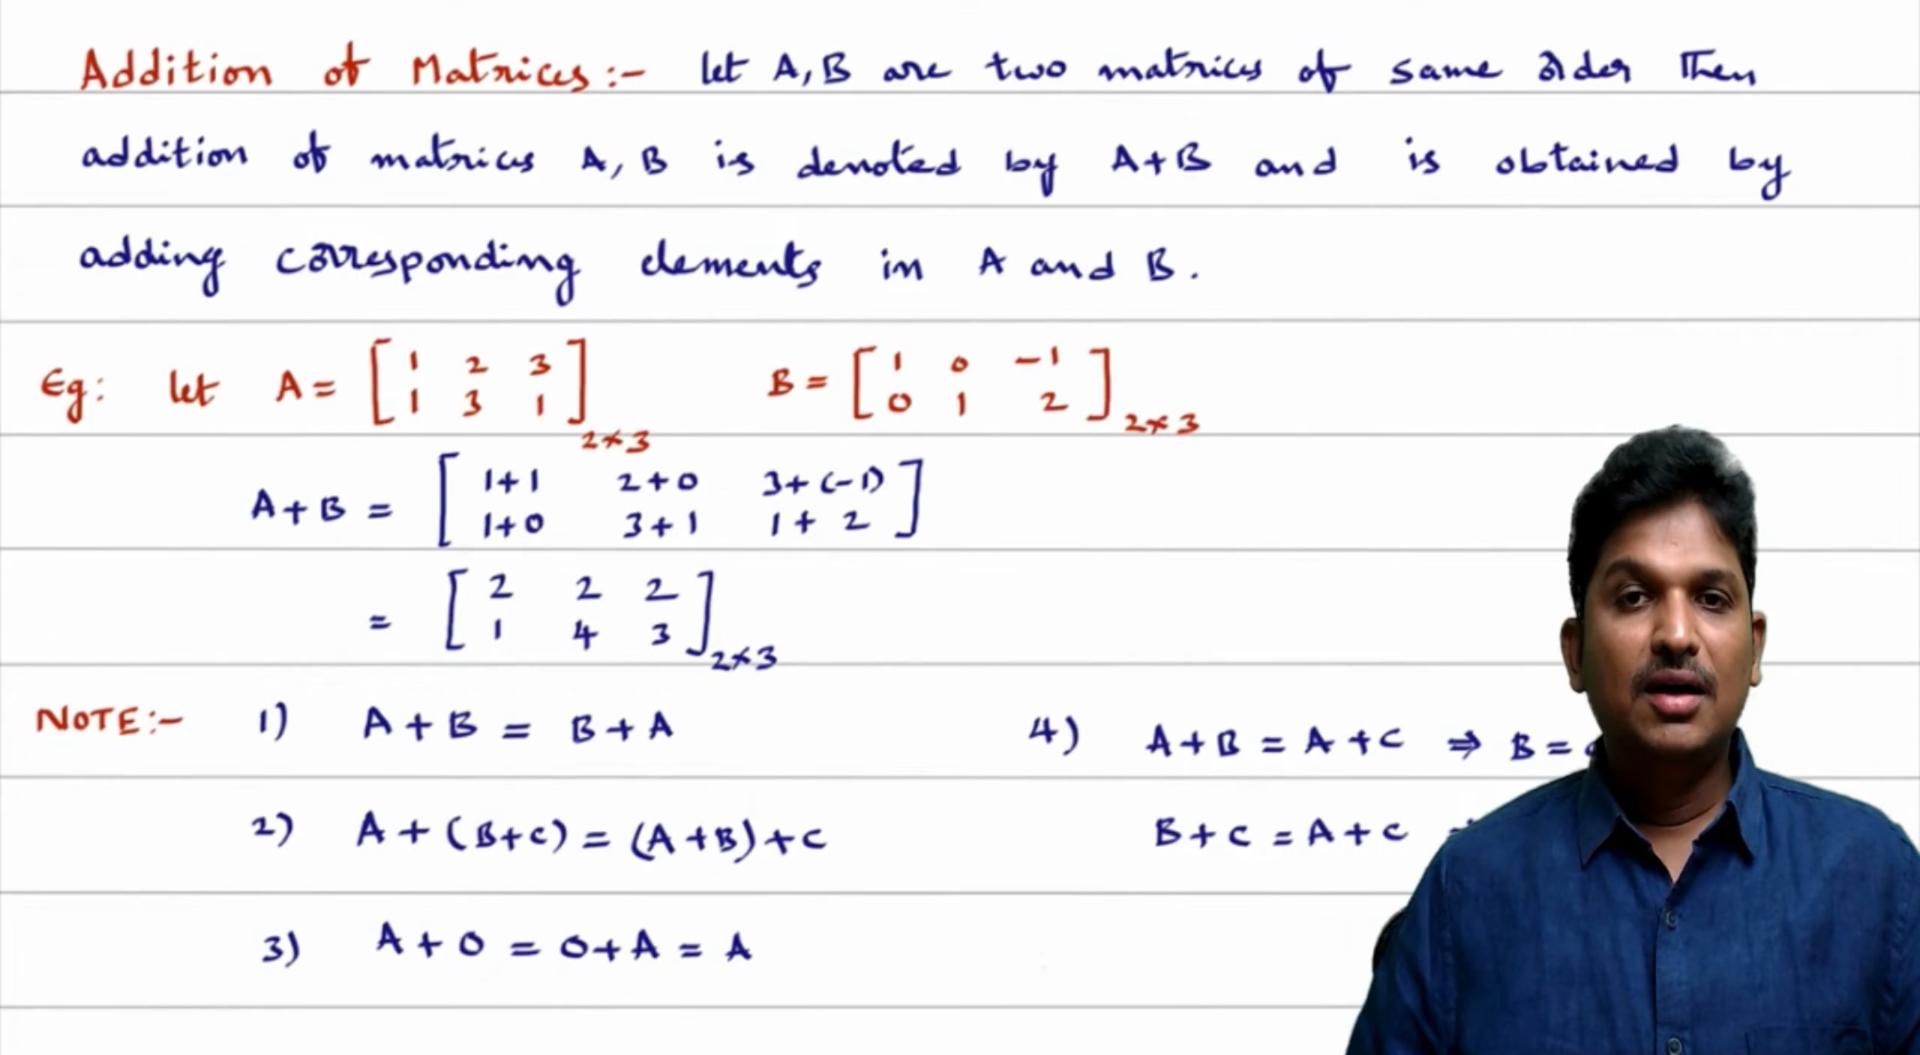 Addition of Matrices:- let A, B are two matrices of same order Then
addition of matrices A, B is denoted by A+B and is obtained by
adding corresponding elements in A and B.
Eg: let A = [ 1 2 3
1 3 1 ] 2×3 B = [ 1 0 -1
0 1 2 ] 2×3
A+B = [ 1+1 2+0 3+(-1)
1+0 3+1 1+2 ]
= [ 2 2 2
1 4 3 ] 2×3
NOTE:- 1) A+B = B+A
2) A+(B+C) = (A+B)+C
3) A+O = O+A = A
4) A+B = A+C ⇒ B =
B+C = A+C